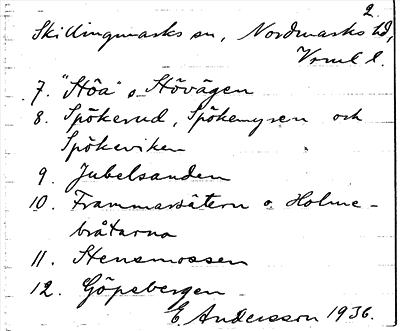 2.
Skillingmarks sn, Nordmarks hd,
Vrml l.
7. "Stôa" o. Stövägen
8. Spökerud, Spökemyren och
Spökeviken
9. Jubelsanden
10. Frammarsätern o. Holme-
bråtarna
11. Stensmossen
12. Göpebergen
E. Andersson 1936.